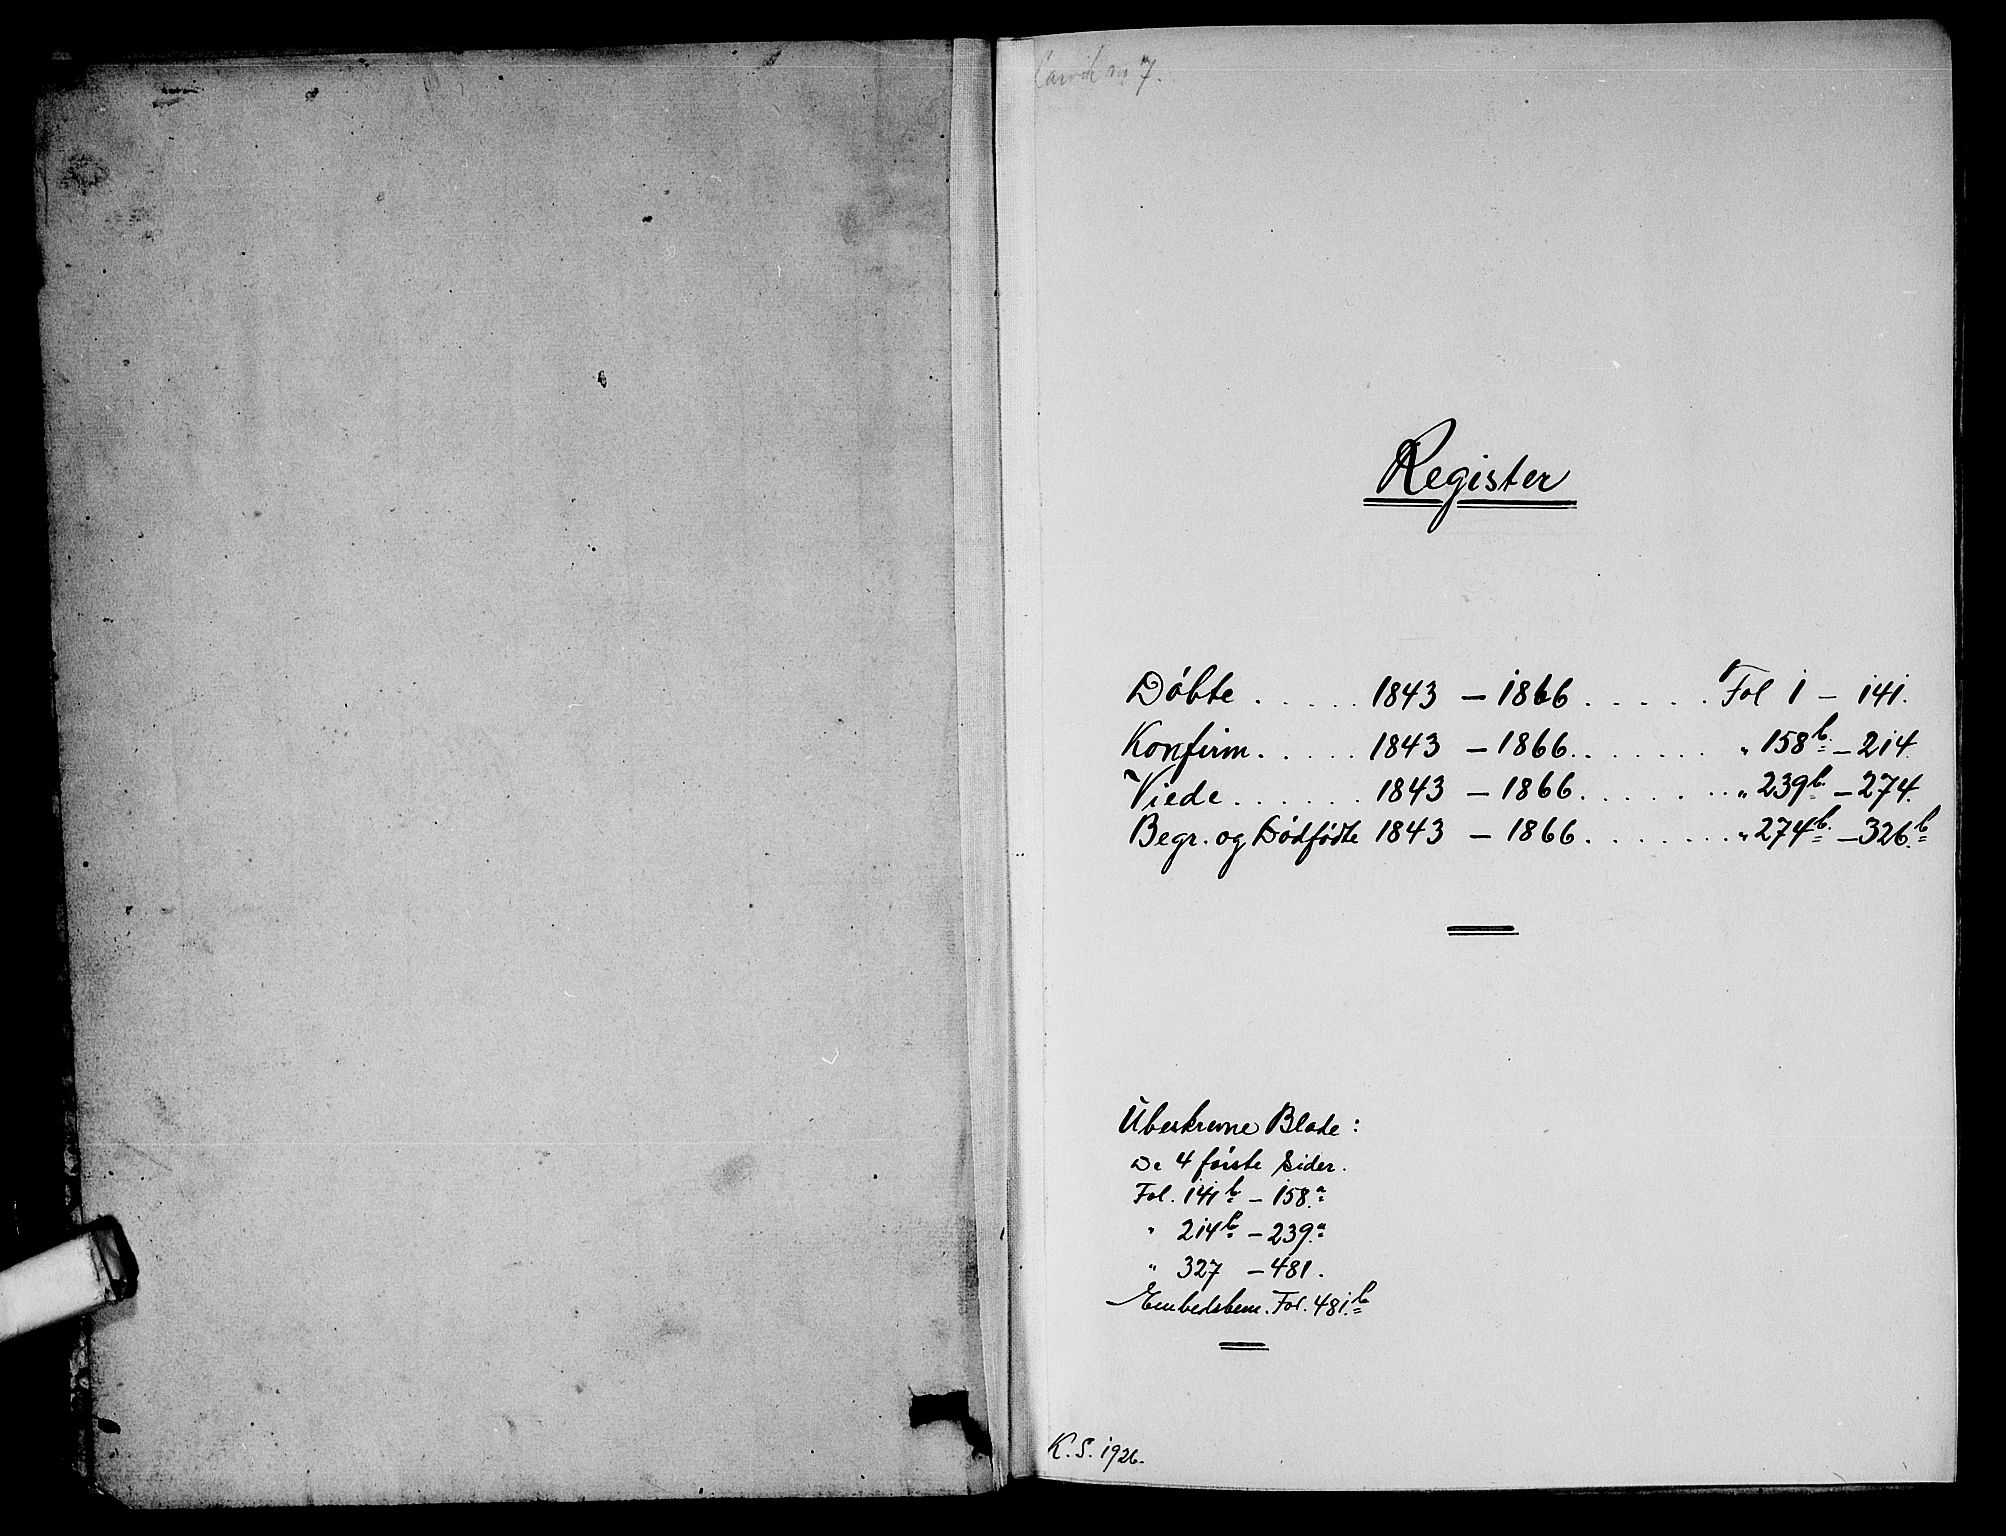 Larvik no 7.
Register
Döbte . . . . . 1843 – 1866 . . . . . Fol 1 – 141.
Konfirm. . . . . 1843 – 1866. . . . . . . " 158b. – 214.
Viede . . . . . . 1843 – 1866. . . . . . . . " 239b. – 274.
Begr. og Dødfødte 1843 – 1866 . . . . . . . " 274b. – 326.b
Ubeskrevne Blade :
De 4 første Sider.
Fol. 141b – 158.a
" 214b – 239.a
" 327 – 481.
Embedsbem. Fol. 481.b
K. S. 1926.